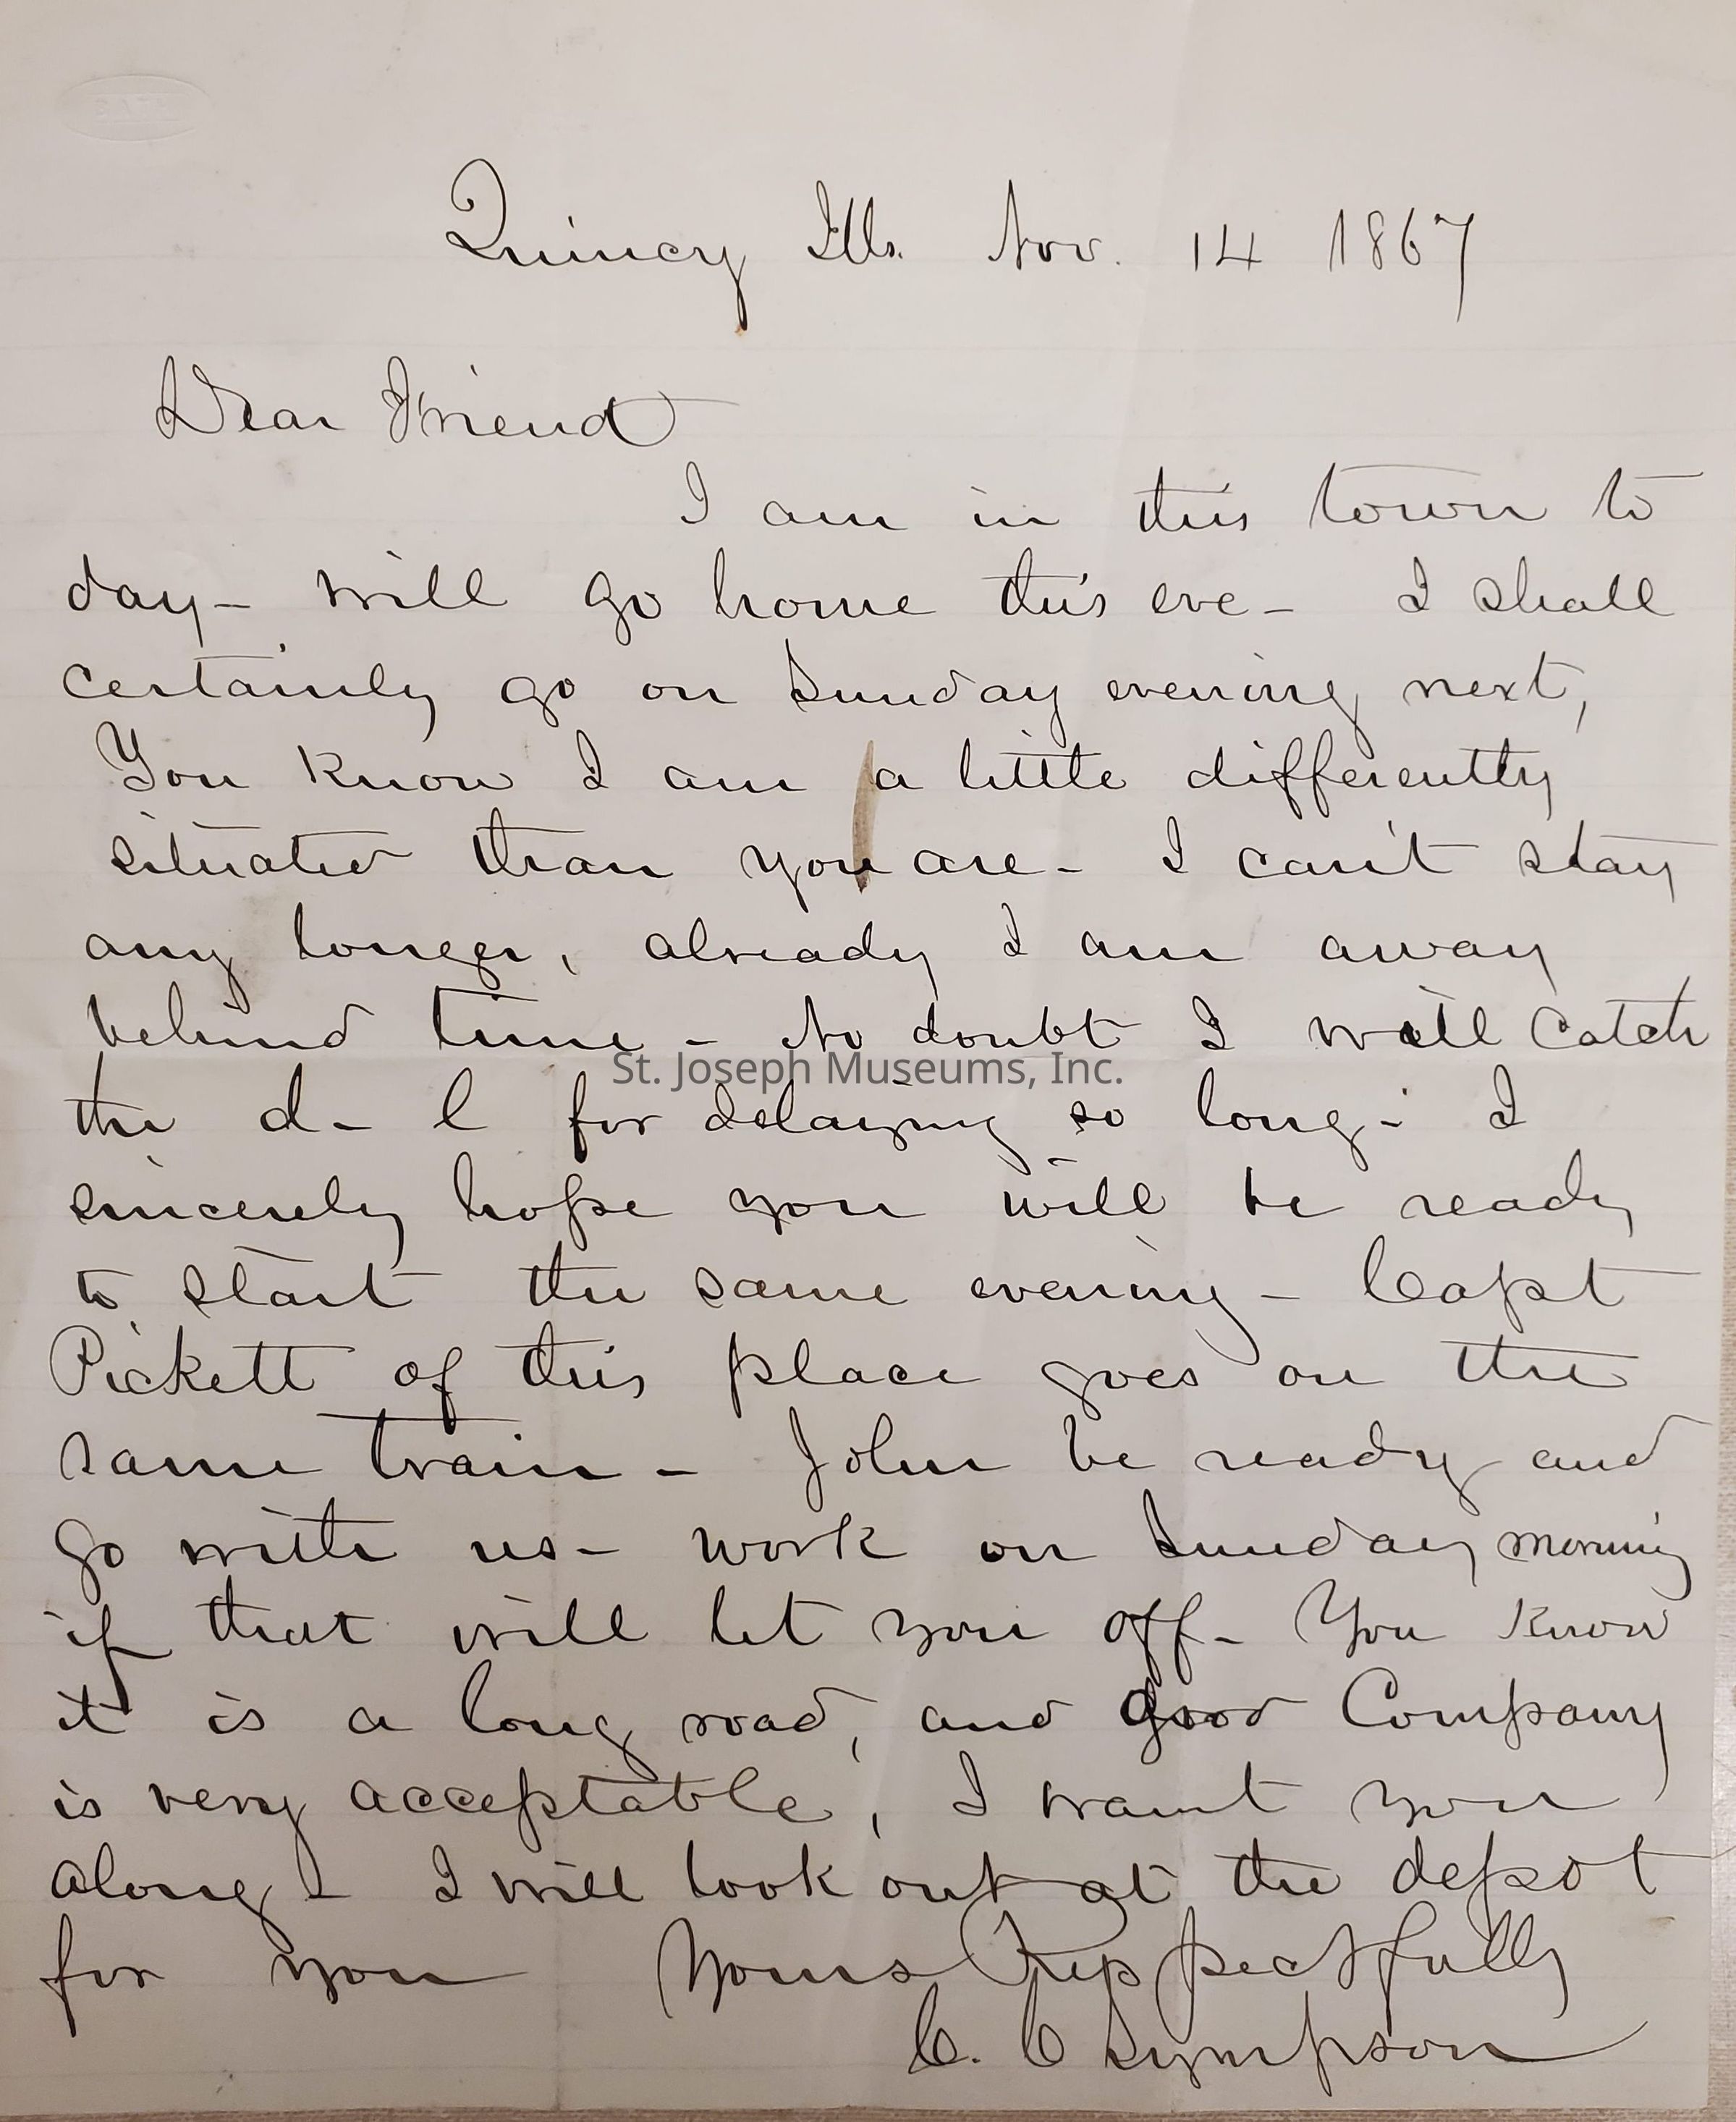 Quincy Ills. Nov. 14 1867
Dear Friend
I am in this town to
day - will go home this eve - I shall
certainly go on Sunday evening next,
You know I am a little differently
situated than you are - I can't stay
any longer, already I am away
behind time - No doubt I will catch
St. Joseph Museums, Inc.
the d - l for delaying so long - I
sincerely hope you will be ready
to start the same evening - Capt
Pickett of this place goes on the
same train - John be ready and
go with us - work on Sunday morning
if that will let you off - You know
it is a long road, and good Company
is very acceptable, I want you
along - I will look out at the depot
for you Yours Respectfully
C. C Sympson